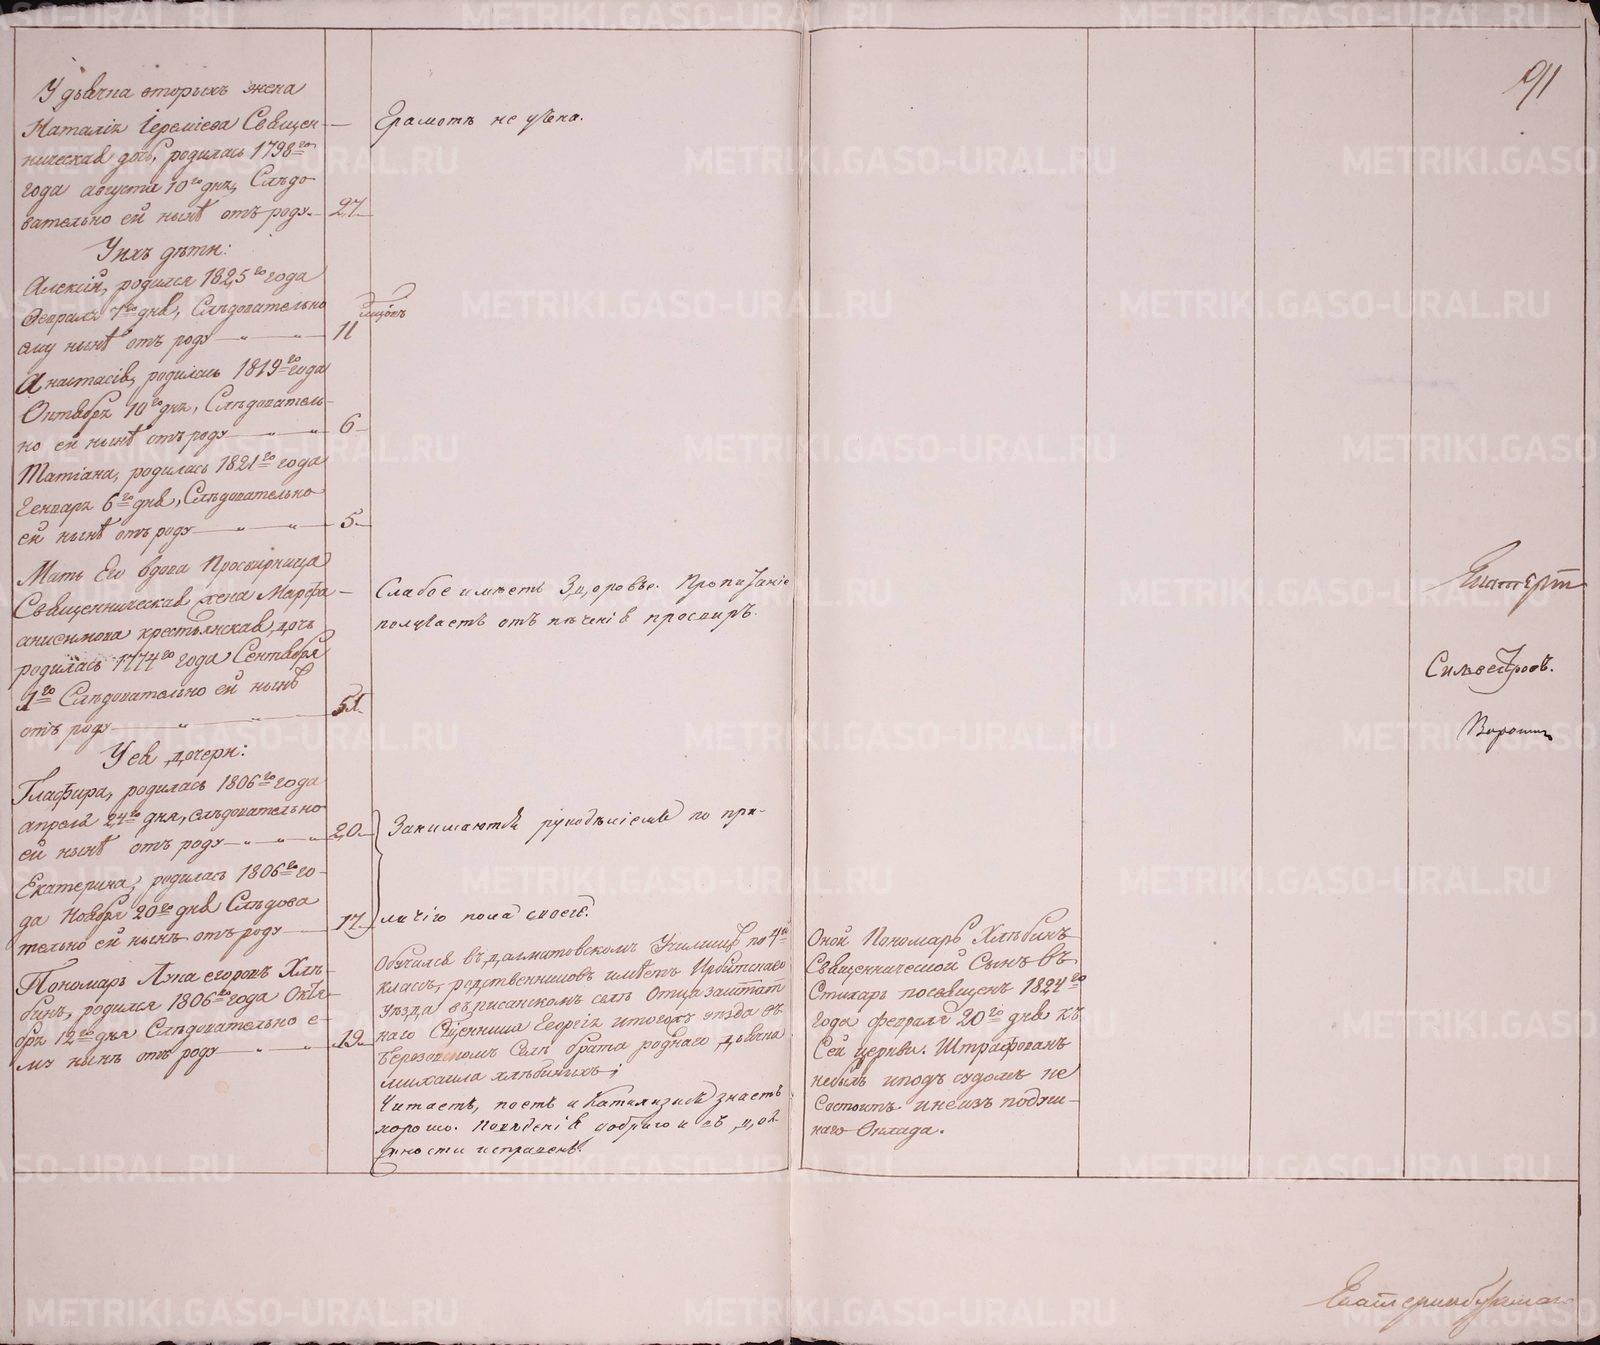 91
У дьячка вторыхъ жена
Наталія Іереміева Священ-
ническая дочь, родилась 1798го
года августа 10го дня, Слѣдо
вательно ей нынѣ отъ роду 27
Грамотѣ не учена.
У нихъ дѣти:
Алексій, родился 1825го года
Февраля 7го дня, Слѣдовательно
ему нынѣ отъ роду 11 мѣсяцъ
Анастасія, родилась 1819го года
Октября 10го дня, Слѣдователь-
но ей нынѣ отъ роду 6
Татіана, родилась 1821го года
Генваря 6го дня, Слѣдовательно
ей нынѣ отъ роду 5
Мать Его вдова Просвирница
Священническая жена Марфа
анисимова крестьянская дочь
родилась 1774го года Сентября
1го Слѣдовательно ей нынѣ
отъ роду 51
Слабое имѣетъ Здоровье. Пропитаніе
получаетъ отъ печенія просвиръ.
У ея дочери:
Глафира, родилась 1806го года
апреля 24го дня, слѣдовательно
ей нынѣ отъ роду 20
Екатерина, родилась 1806го го-
да Ноября 20го дня Слѣдова
тельно ей нынѣ отъ роду 17
Занимаются рукодѣліемъ по при-
личію пола своего.
Пономарь Лука егоровъ Хлѣ-
бинъ, родился 1806го года Октя-
бря 12го дня Слѣдовательно е-
му нынѣ отъ роду 19
Обучался въ далматовскомъ Училищѣ по 4й
классъ, родственниковъ имѣетъ Ирбитскаго
уѣзда въ писанскомъ селѣ Отца заштат
наго Сщенника Георгія итогожъ уѣзда въ
березовскомъ Селѣ брата роднаго дьячка
михаила хлѣбиныхъ;
Читаетъ, поетъ и Катихизисъ знаетъ
хорошо. Поведенія добраго и въ дол
жности исправенъ.
Оной Пономарь Хлѣбинъ
Священнической Сынъ въ
Стихарь посвященъ 1824го
года февраля 20го дня къ
Сей церкви. Штрафованъ
небылъ иподъ судомъ не
Состоитъ инеизъ подуш-
наго Оклада.
Силвестровъ.
Екатеринбургскаго